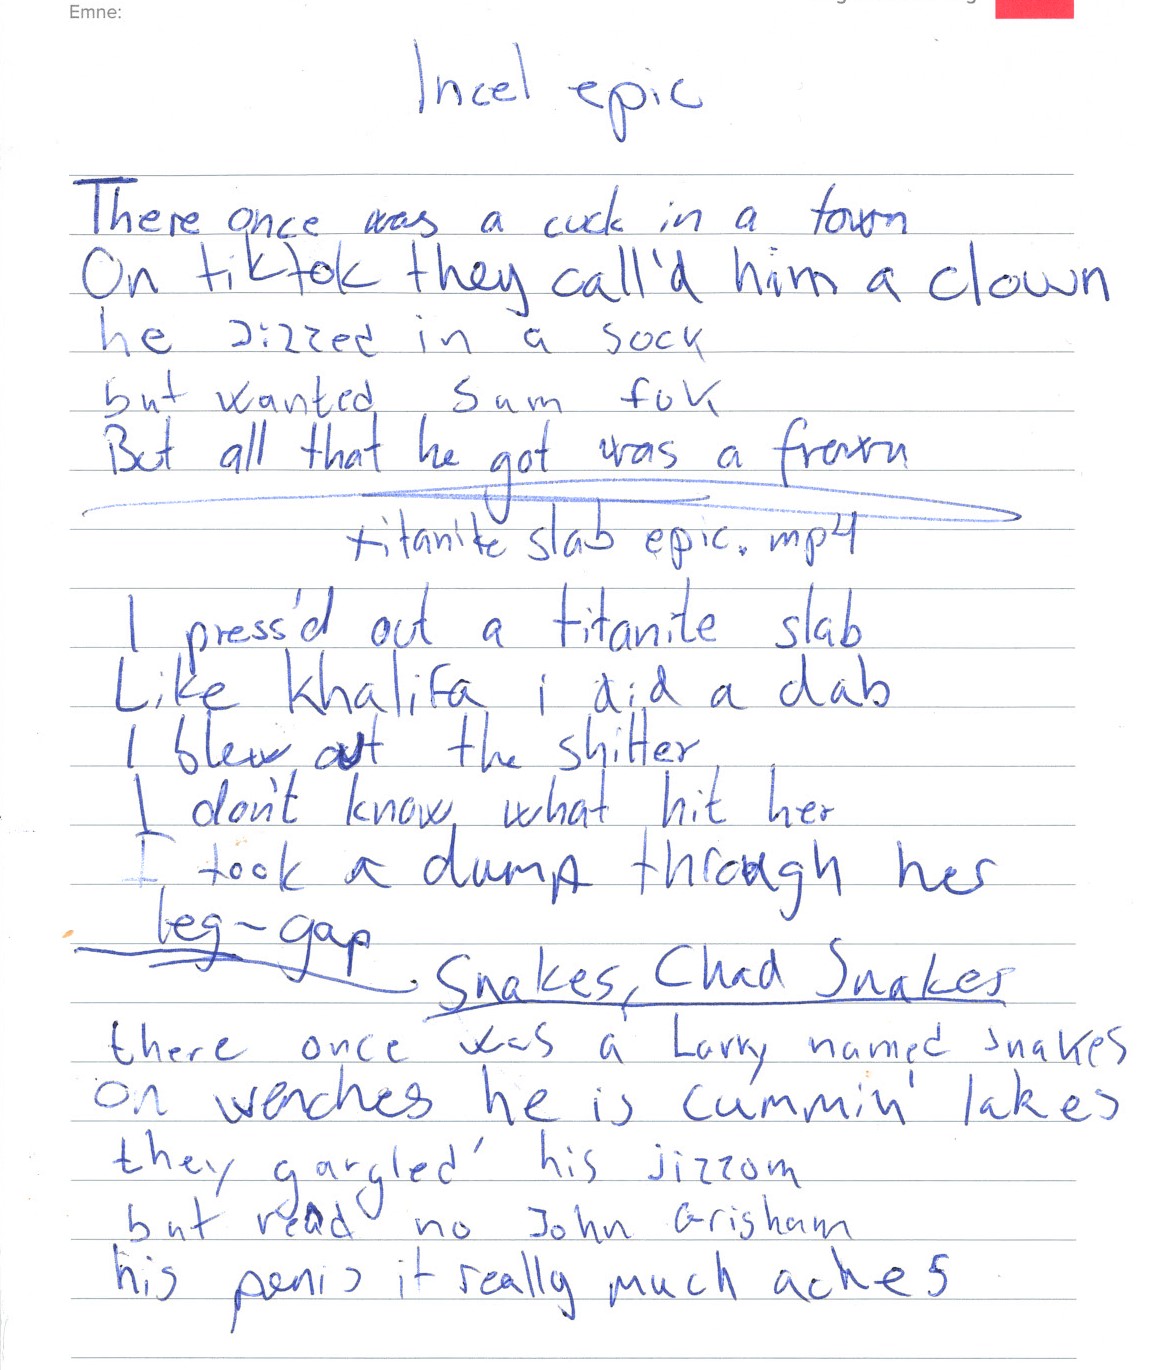 Emne:
Incel epic
There once was a cuck in a town
On tiktok they call'd him a clown
he jizzed in a sock
but wanted sum fuk
But all that he got was a frown
titanite slab epic.mp4
I press'd out a titanite slab
Like Khalifa i did a dab
I blew out the shitter
I don't know what hit her
I took a dump through her
leg-gap
Snakes, Chad Snakes
there once was a Larry named snakes
on wenches he is cummin' lakes
they gargled' his jizzom
but read no John Grisham
his penis it really much aches